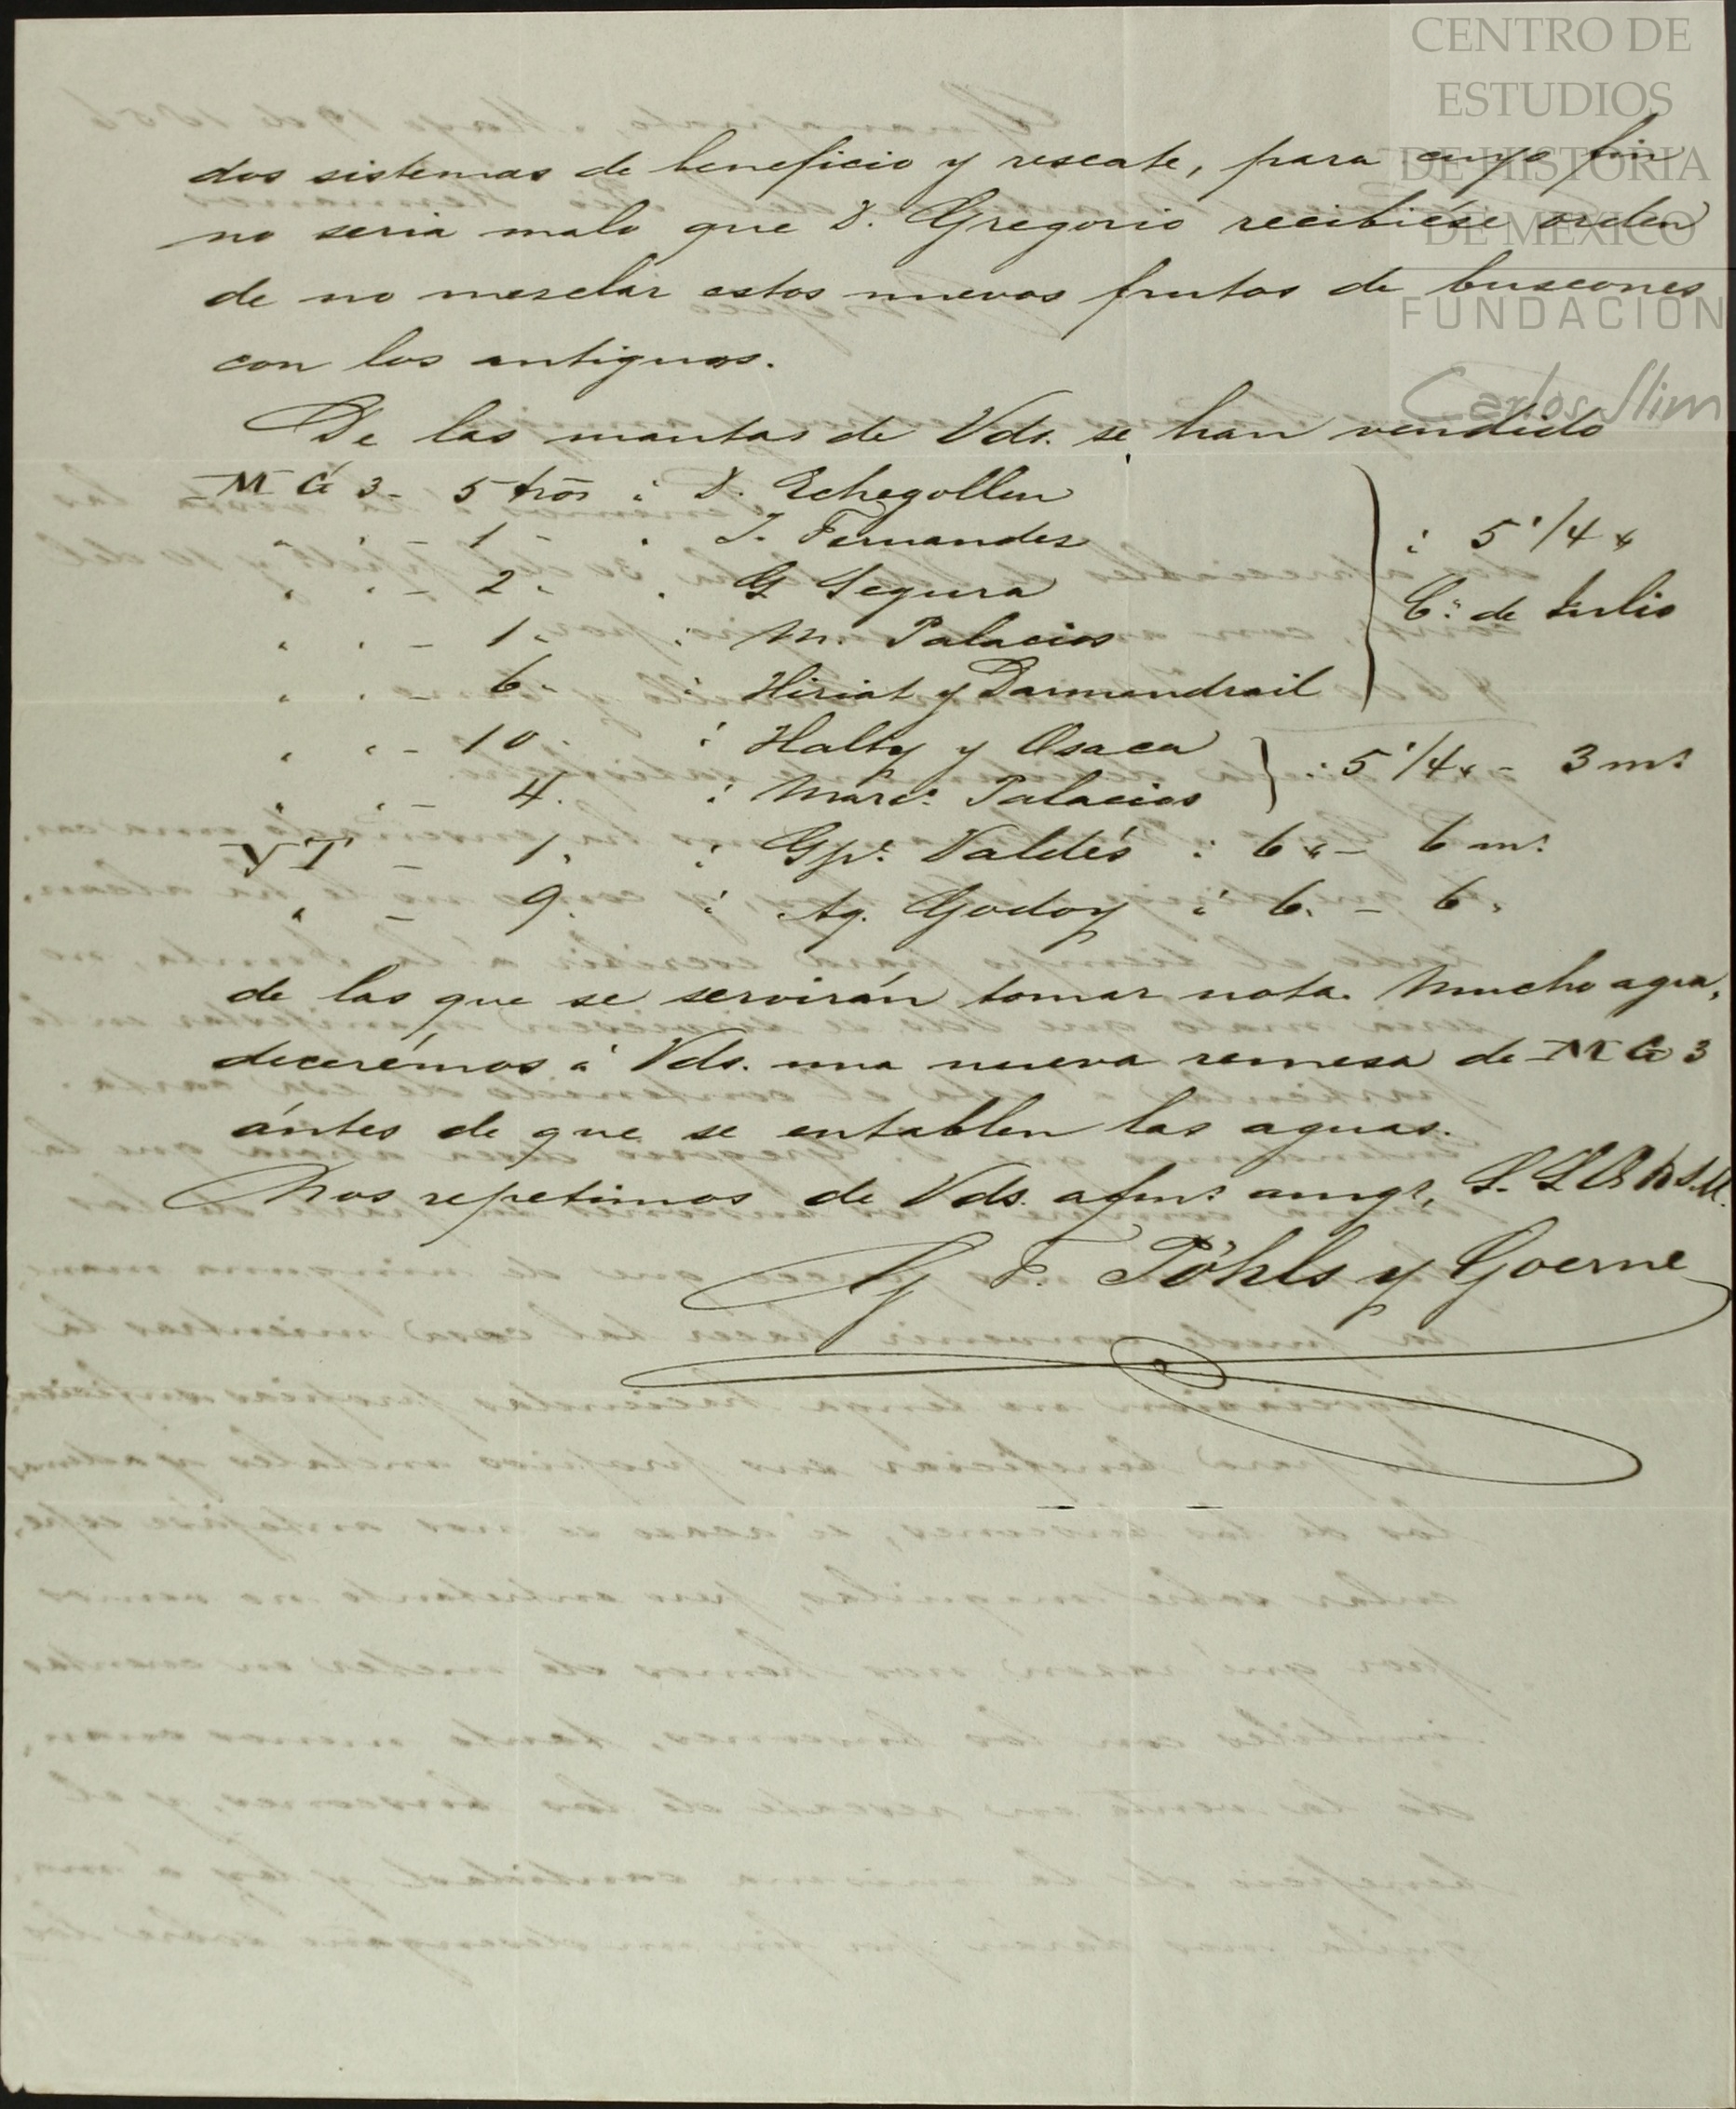 CENTRO DE
ESTUDIOS
DE HISTORIA
DE MÉXICO
FUNDACIÓN
Carlos Slim
dos sistemas de beneficio y rescate, para cuyo fin
no seria malo que D. Gregorio recibiése orden
de no mesclar estos nuevos frutos de buscones
con los antiguos.
De las mantas de Vds. se han vendido
M G 3 - 5 trõs á D. Echegollen
" " - 1 - " J. Fernandez
" " - 2 " " G Segura
" " - 1 " " M. Palacios
" " - 6 " " Hiriat y Darmandrail
á 5 1/4 "
C. de Julio
" " - 10 " á Halty y Osaca
" " - 4 " á Marc. Palacios
á 5 1/4 " - 3 ms
- 1 " á Gpe. Valdés á 6 " - 6 ms
" - 9 " á Ag. Godoy á 6 " - 6 "
de las que se servirán tomar nota. Mucho agra,
decerémos á Vds. una nueva remesa de M G 3
ántes de que se entablen las aguas.
Nos repetimos de Vds. afms. amgs,
G F. Pöhls y Goerne